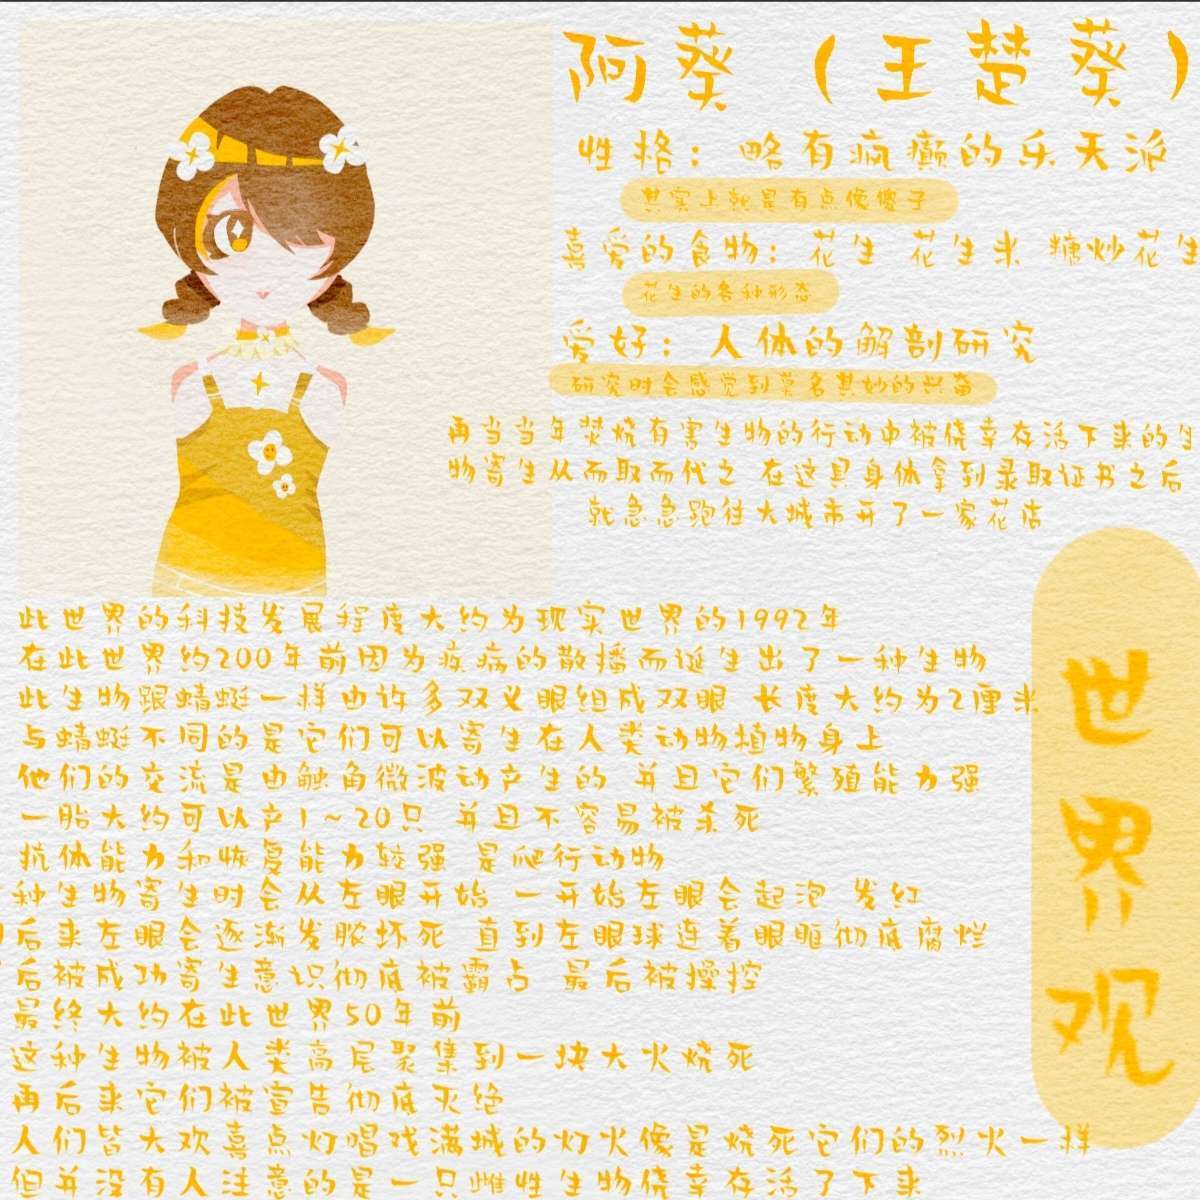 阿葵（王楚葵）
性格：略有疯癫的乐天派
其实上就是有点像傻子
喜爱的食物：花生 花生米 糖炒花生
花生的各种形态
爱好：人体的解剖研究
研究时会感觉到莫名其妙的兴奋
再当当年焚烧有害生物的行动中被侥幸存活下来的生
物寄生从而取而代之 在这具身体拿到录取证书之后
就急急跑往大城市开了一家花店
世界观
此世界的科技发展程度大约为现实世界的1992年
在此世界约200年前因为疾病的散播而诞生出了一种生物
此生物跟蜻蜓一样由许多双义眼组成双眼 长度大约为2厘米
与蜻蜓不同的是它们可以寄生在人类动物植物身上
他们的交流是由触角微波动产生的 并且它们繁殖能力强
一胎大约可以产1~20只 并且不容易被杀死
抗体能力和恢复能力较强 是爬行动物
种生物寄生时会从左眼开始 一开始左眼会起泡 发红
后来左眼会逐渐发脓坏死 直到左眼球连着眼眶彻底腐烂
后被成功寄生意识彻底被霸占 最后被操控
最终大约在此世界50年前
这种生物被人类高层聚集到一块大火烧死
再后来它们被宣告彻底灭绝
人们皆大欢喜点灯唱戏满城的灯火像是烧死它们的烈火一样
但并没有人注意的是一只雌性生物侥幸存活了下来